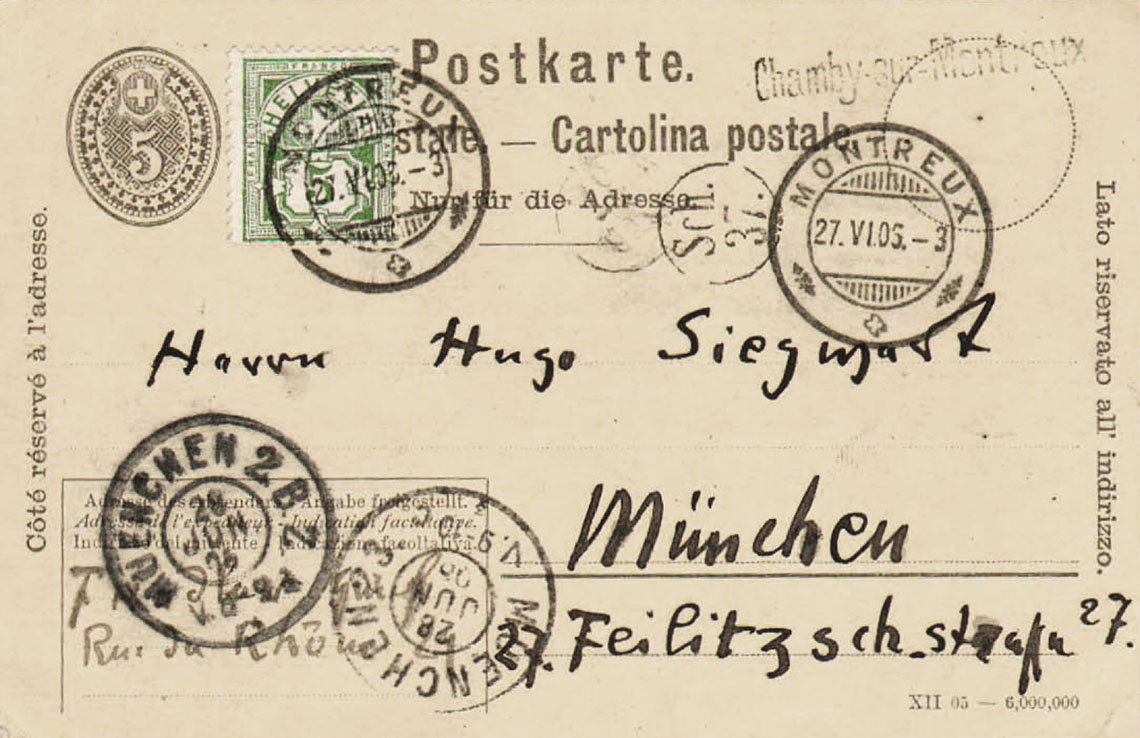 5
FRANCO
HELVETIA
5
Postkarte.
Chamby-sur-Montreux
stale. — Cartolina postale
Nur für die Adresse.
MONTREUX
27.VI.06.-3
Sch.
37.
MONTREUX
27.VI.06.-3
Côté réservé à l'adresse.
Lato riservato all' indirizzo.
Herrn Hugo Siegwart
MUENCHEN 2 B.Z.
Adresse des Absenders - Angabe freigestellt.
Adresse de l'expéditeur - Indication facultative.
Indirizzo del mittente - Indicazione facoltativa.
München
Rue du Rhône
MUENCHEN
28
JUN
06
27. Feilitzschstrasse 27.
XII 05 — 6,000,000